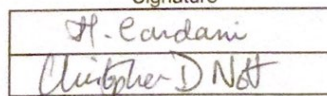 Signature
H. Cardani
Christopher D Nott